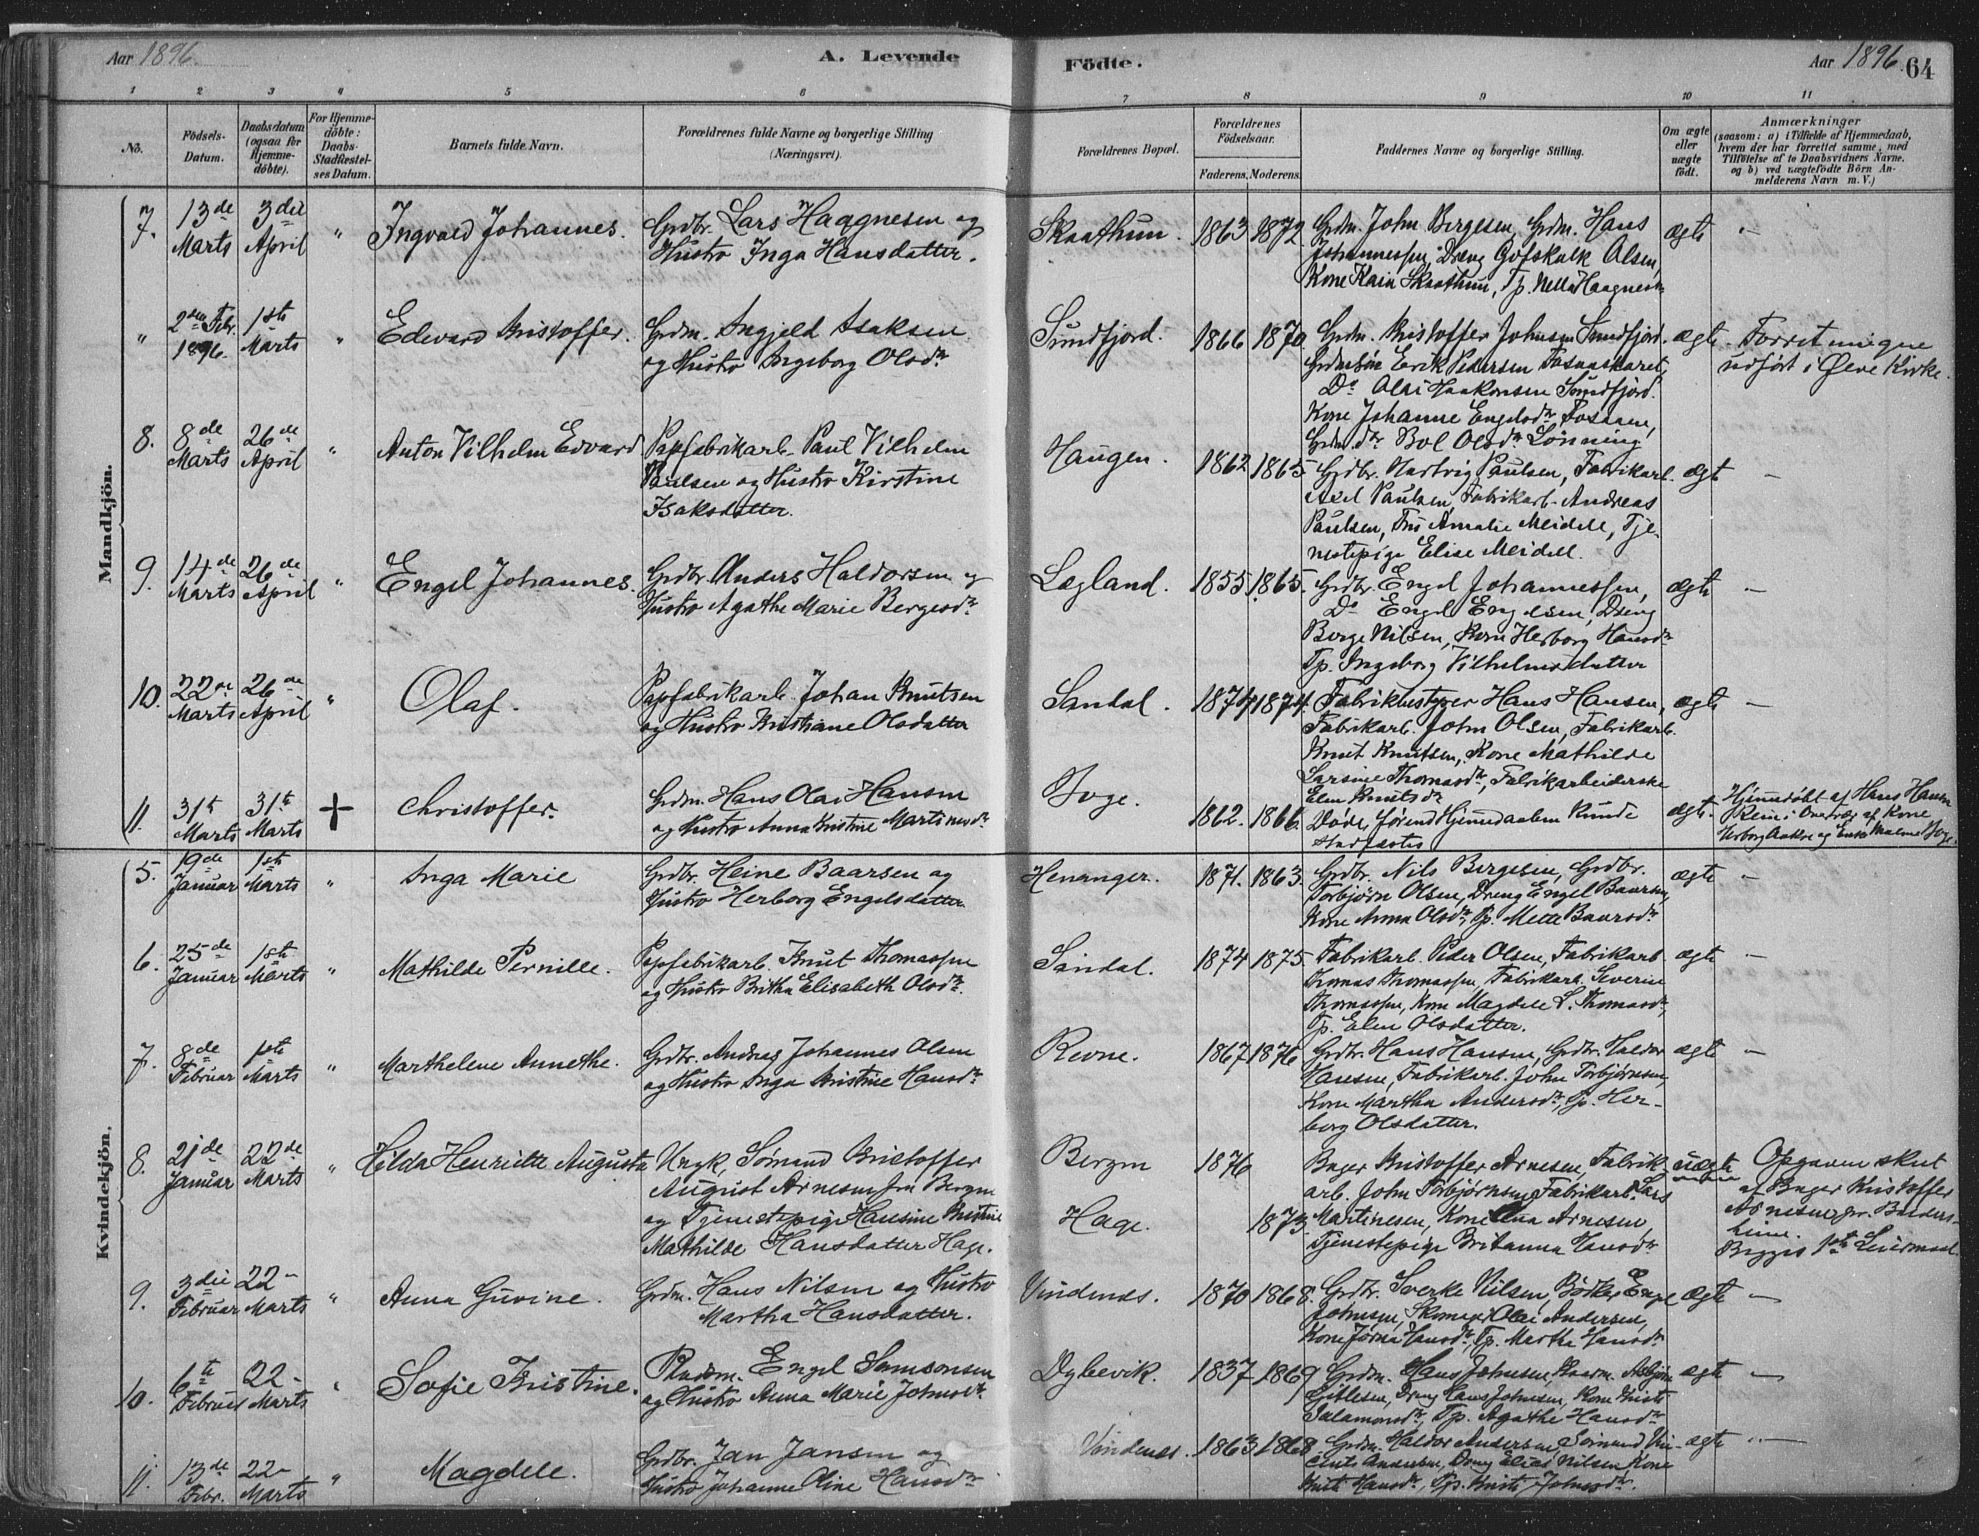 Aar 1896.
A. Levende
Födte.
Aar 1896. 64
1 2 3 4 5 6 7 8 9 10 11
No.
Födsels-
Datum.
Daabsdatum
(ogsaa for
Hjemme-
döbte).
For Hjemme-
döbte:
Daabs-
Stadfæstel-
ses Datum.
Barnets fulde Navn.
Forældrenes fulde Navne og borgerlige Stilling
(Næringsvei).
Forældrenes Bopæl.
Forældrenes
Födselsaar.
Faderens. Moderens.
Faddernes Navne og borgerlige Stilling.
Om ægte
eller
uægte
født.
Anmærkninger
(saasom: a) i Tilfælde af Hjemmedaab,
hvem der har forrettet samme, med
Tilföielse af to Daabsvidners Navne,
og b) ved uægtefödte Börn An-
melderens Navn m. V.)
Mandkjön.
7. 13de Marts 3die April " Ingvald Johannes.
Grdbr. Lars Haagnesen og
Hustro Inga Hansdatter.
Skaathun. 1863 1872
Grdm. John Bergesen, Grdm. Hans
Johannessen, Dreng Gotskalk Olsen,
Kone Kari Skaathun, Tp. Nella Haagnesdr
ægte "
" 2den Febr. 1896. 1ste Marts " Edvard Kristoffer.
Grdm. Ingjeld Isaksen
og Hustro Ingeborg Olsdr.
Sundfjord. 1866 1870
Grdm. Kristoffer Johnsen Sundfjord.
Grdmsøn Erik Pedersen Fosnaskaret,
Do Olai Haakonsen Sundfjord.
Kone Johanne Engelsdr Fosnen,
Grdm. dr. Bol Olsdr Lønning
ægte. Forretningene
udført i Øvre Kirke.
8. 8de Marts 26de April " Anton Vilhelm Edvard
Papfabrikarb. Paul Vilhelm
Paulsen og Hustro Kirstine
Isaksdatter.
Haugen. 1862 1865
Grdbr. Hartvig Paulsen, Fabrikarb.
Axel Paulsen, Fabrikarb. Andreas
Paulsen, Fru Amalie Meidell, Tje-
nestepige Elise Meidell.
ægte –
9. 14de Marts 26de April " Engel Johannes.
Grdbr. Anders Haldorsen og
Hustro Agathe Marie Bergesdr.
Lægland. 1855 1865.
Grdbr. Engel Johannessen,
Do Engel Engelsen, Dreng
Berge Nilsen, Kone Herborg Hansdr
Tp. Ingeborg Vilhelmsdatter
ægte –
10. 22de Marts 26de April " Olaf.
Papfabrikarb. Johan Knutsen
og Hustro Kristiane Olsdatter
Sandal. 1874 1874.
Fabrikbestyrer Hans Hansen,
Fabrikarb. John Olsen, Fabrikarb.
Knut Knutsen, Kone Mathilde
Larsine Thomasdr, Fabrikarbeiderske
Elen Knutsdr
ægte –
11. 31te Marts 31te Marts + Christoffer.
Grdm. Hans Olai Hansen
og Hustro Anna Kristine Martinesdr.
Boge. 1862. 1866.
Døde, førend Hjemmedaaben kunde
stadfæstes
ægte. Hjemmedøbt af Hans Hansen
Rem i Overvær af Kone
Kvindekjön.
5. 19de Januar 1ste Marts " Inga Marie
Grdbr. Heine Baarsen og
Hustro Herborg Engelsdatter.
Henanger. 1871. 1863.
Grdbr. Nils Bergesen, Grdbr.
Torbjørn Olsen, Dreng Engel Baarsen,
Kone Anna Olsdr, Tp. Mette Baarsdr.
ægte "
6. 25de Januar 1ste Marts " Mathilde Pernille.
Papfabrikarb. Knut Thomassen
og Hustro Britha Elisabeth Olsdr.
Sandal. 1874 1875
Fabrikarb. Peder Olsen, Fabrikarb
Thomas Thomassen, Fabrikarb. Severin
Thomassen, Kone Magdele S. Thomasdr,
Tp. Elen Olsdatter.
ægte "
7. 8de Februar 1ste Marts " Marthelene Annethe.
Grdbr. Andreas Johannes Olsen
og Hustro Inga Kristine Hansdr.
Revne. 1867 1876
Grdbr. Hans Hansen, Grdbr. Haldor
Hansen, Fabrikarb. John Torbjørnsen,
Kone Martha Andersdr, Tp. Her-
borg Olsdatter.
ægte "
8. 21de Januar 22de Marts " Hilda Henriette Augusta
Ungk. Sømand Kristoffer
August Arnesen fra Bergen
og Tjenestepige Hansine Kristine
Mathilde Hansdatter Hage.
Bergen
Hage.
1876
1873
Bager Kristoffer Arnesen, Fabrik-
arb. John Torbjørnsen, Fabrikarb. Lars
Martinesen, Kone Anna Arnesen,
Tjenestepige Britanna Hansdr
uægte Opgaven skeet
af Bager Kristoffer
Arnesen
Begges 1ste Leiermaal.
9. 3die Februar 22- Marts " Anna Guvine.
Grdm. Hans Nilsen og Hustro
Martha Hansdatter.
Vindenes. 1870 1868.
Grdbr. Sverke Nilsen, Bødker Engel
Johnsen, Skomager Olai Andersen,
Kone Jorna Hansdr, Tp. Marthe Hansdr
ægte –
10. 6te Februar 22- Marts " Sofie Kristine.
Pladsm. Engel Samsonsen
og Hustro Anna Marie Johnsdr.
Dybevik. 1837 1869
Grdm. Hans Johnsen, Asbjørn
Gitlesen, Dreng Hans Johnsen, Kone Kristi
Salamonsdr, Tp. Agathe Hansdr
ægte –
11. 13de Febr. 22- Marts " Magdele.
Grdbr. Jan Jansen og
Hustro Johanne Oline Hansdr.
Vindenes. 1863 1868.
Grdm. Haldor Andersen, Sømand Vin-
cents Andersen, Dreng Elias Nilsen, Kone
Kristi Hansdr, Tp. Kristi Johnsdr.
ægte "